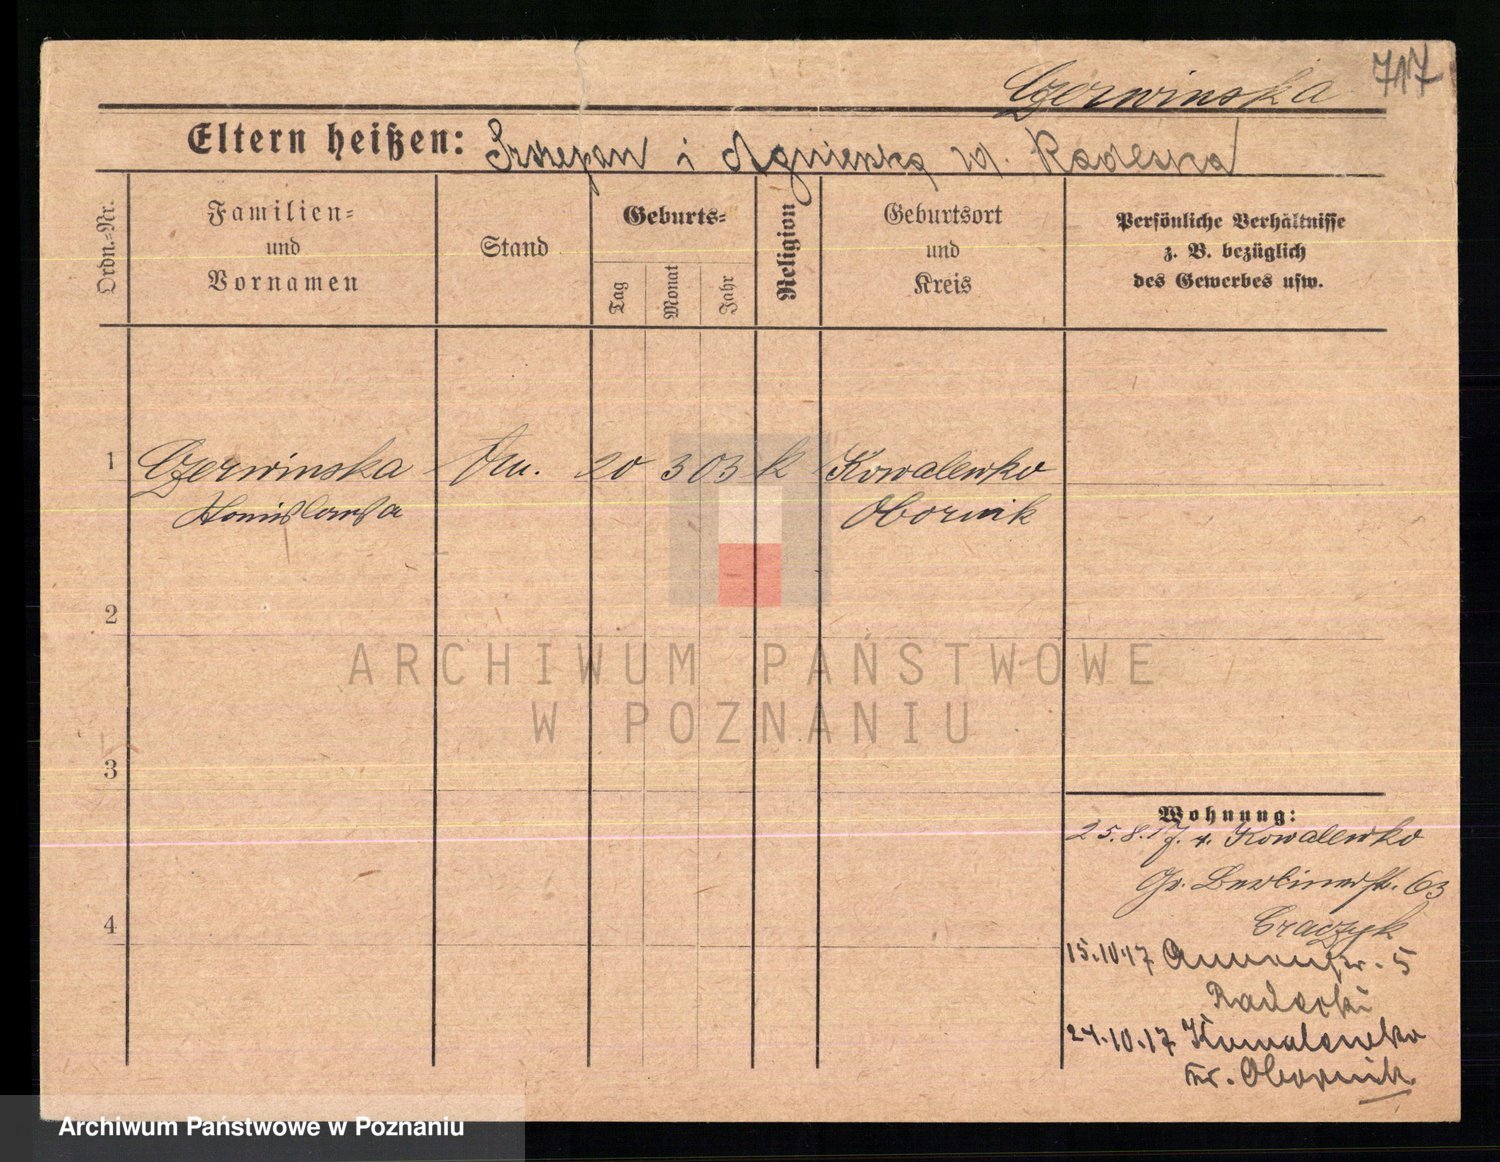 717
Czerwinska
Eltern heißen: Szczepan i Agnieszka
Ordn.-Nr.
Familien-
und
Vornamen
Stand
Geburts-
Tag
Monat
Jahr
Religion
Geburtsort
und
Kreis
Persönliche Verhältnisse
z. B. bezüglich
des Gewerbes usw.
1 Czerwinska 20 3 03 k Kowalewko
Stanislawa Obornik
2
3
4
Wohnung:
25.8.17. v. Kowalewko
Gr. Berlinerstr. 63
15.10.17 5
24.10.17 Kowalewko
Kr. Obornik
ARCHIWUM PAŃSTWOWE
W POZNANIU
Archiwum Państwowe w Poznaniu